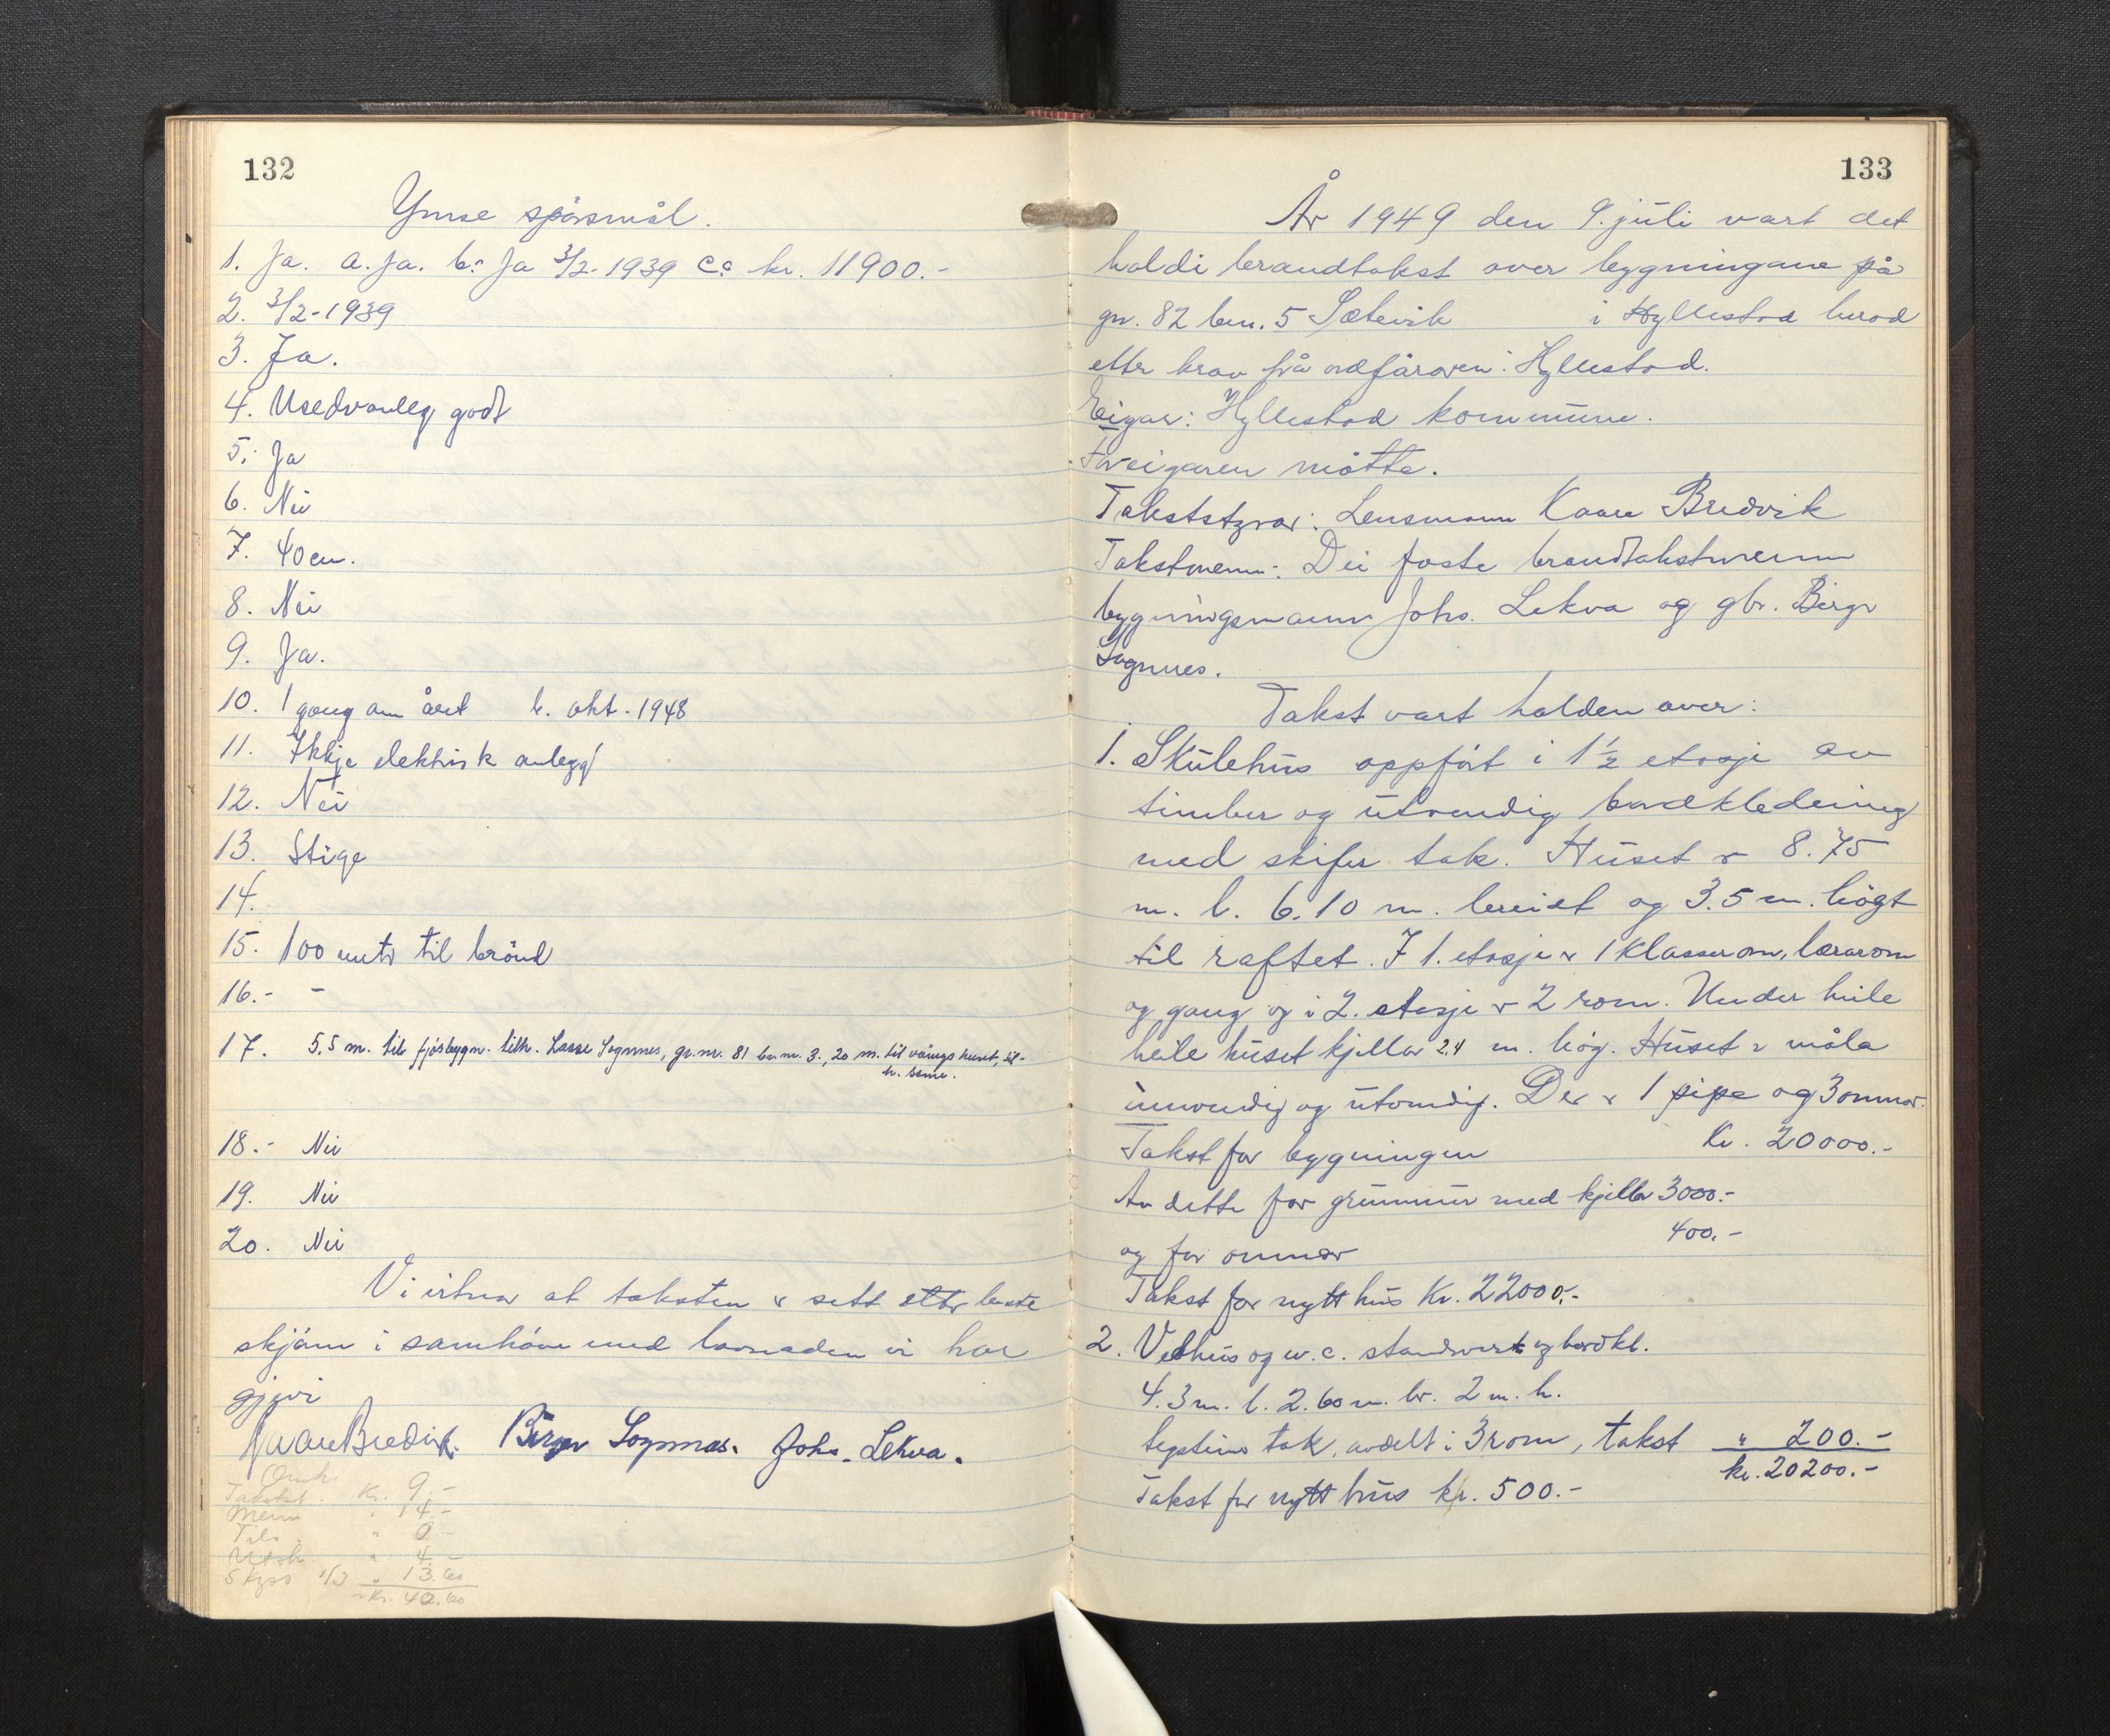 132
Ymse spörsmål.
1. Ja. a. Ja. b: Ja 3/2-1939 c: kr. 11900.-
2. 3/2-1939
3. Ja.
4. Usedvanleg godt
5. Ja
6. Nei
7. 40 cm.
8. Nei
9. Ja.
10. 1 gang om året b. okt. 1948
11. Ikkje elektrisk anlegg
12. Nei
13. Stige
14.
15. 100 meter til brönd
16.- -
17. 5,5 m. til fjösbygn. tilh. Lasse Sognnes, gr.nr. 81 br.nr. 3., 20 m. til vånings huset, til-
h. same.
18.- Nei
19. Nei
20. Nei
Vi vitnar at taksten er sett etter beste
skjön i samhöve med lovnaden vi har
gjevi
Kaare Bredvik. Birger Sognnes. Johs. Lekva.
Omk.
Takstst. Kr. 9.-
Menn " 14.-
Tils. " 0.-
Utsk. " 4.-
Skyss 1/3 " 13.60
Kr. 40.60
133
År 1949 den 9. juli vart det
haldi brandtakst over bygningane på
gn. 82 bn. 5 Sætevik i Hyllestad herad
etter krav frå ordföraren: Hyllestad.
Eigar: Hyllestad kommune.
For eigaren mötte.
Takststyrar: Lensmann Kaare Bredvik
Takstmenn: Dei faste brandtakstmenn
bygningsmann Johs. Lekva og gbr. Birger
Sognnes.
Takst vart halden over:
1. Skulehus oppfört i 1 1/2 etasje av
timber og utvendig bordkledning
med skifer tak. Huset er 8.75
m. l. 6.10 m. breidt og 3.5 m. högt
til raftet. I 1. etasje er 1 klasserom, lærarom
og gang og i 2. etasje er 2 rom. Under heile
heile huset kjellar 2,4 m. hög. Huset er måla
innvendig og utvendig. Der er 1 pipe og 3 omnar.
Takst for bygningen Kr. 20000.-
Av dette for grunnmur med kjellar 3000.-
og for omnar 400.-
Takst for nytt hus Kr. 22000.-
2. Vedhus og w.c. standverk og bordkl.
4.3 m. l. 2.60 m. br. 2 m. h.
tegstens tak, avdelt i 3 rom, takst " 200.-
kr. 20200.-
Takst for nytt hus kr. 500.-